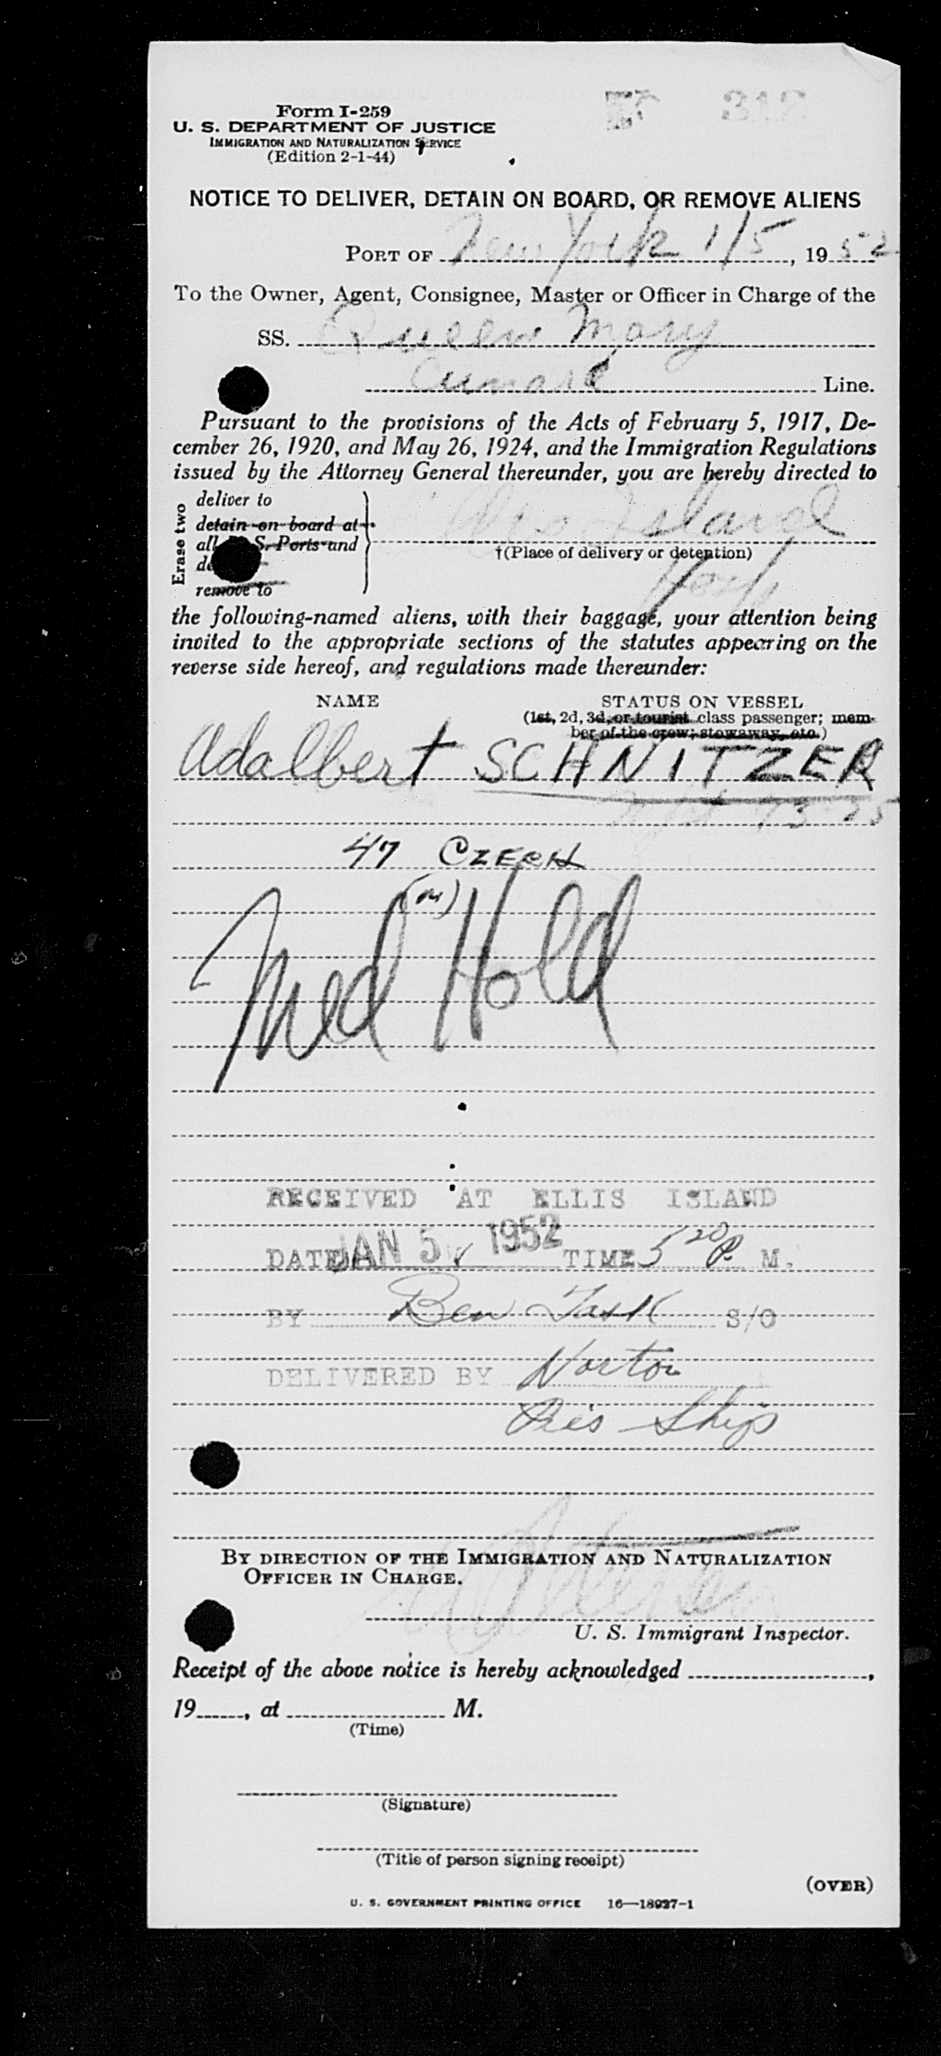 312
Form I-259
U. S. DEPARTMENT OF JUSTICE
IMMIGRATION AND NATURALIZATION SERVICE
(Edition 2-1-44)
NOTICE TO DELIVER, DETAIN ON BOARD, OR REMOVE ALIENS
PORT OF New York 1/5, 1952
To the Owner, Agent, Consignee, Master or Officer in Charge of the
SS. Queen Mary
Cunard Line.
Pursuant to the provisions of the Acts of February 5, 1917, De-
cember 26, 1920, and May 26, 1924, and the Immigration Regulations
issued by the Attorney General thereunder, you are hereby directed to
Erase two
deliver to
detain on board at
all U.S. Ports and
de
remove to
Ellis Island
†(Place of delivery or detention)
Hosp
the following-named aliens, with their baggage, your attention being
invited to the appropriate sections of the statutes appearing on the
reverse side hereof, and regulations made thereunder:
NAME STATUS ON VESSEL
(1st, 2d, 3d, or tourist class passenger; mem-
ber of the crew; stowaway, etc.)
Adalbert SCHNITZER
47 CZECH
(m)
Med Hold
RECEIVED AT ELLIS ISLAND
DATE JAN 5 1952 TIME 5 20 P. M.
BY Ben Task S/O
DELIVERED BY Norton
Ship
BY DIRECTION OF THE IMMIGRATION AND NATURALIZATION
OFFICER IN CHARGE.
U. S. Immigrant Inspector.
Receipt of the above notice is hereby acknowledged ,
19 , at M.
(Time)
(Signature)
(Title of person signing receipt)
(OVER)
U. S. GOVERNMENT PRINTING OFFICE 16—18927-1